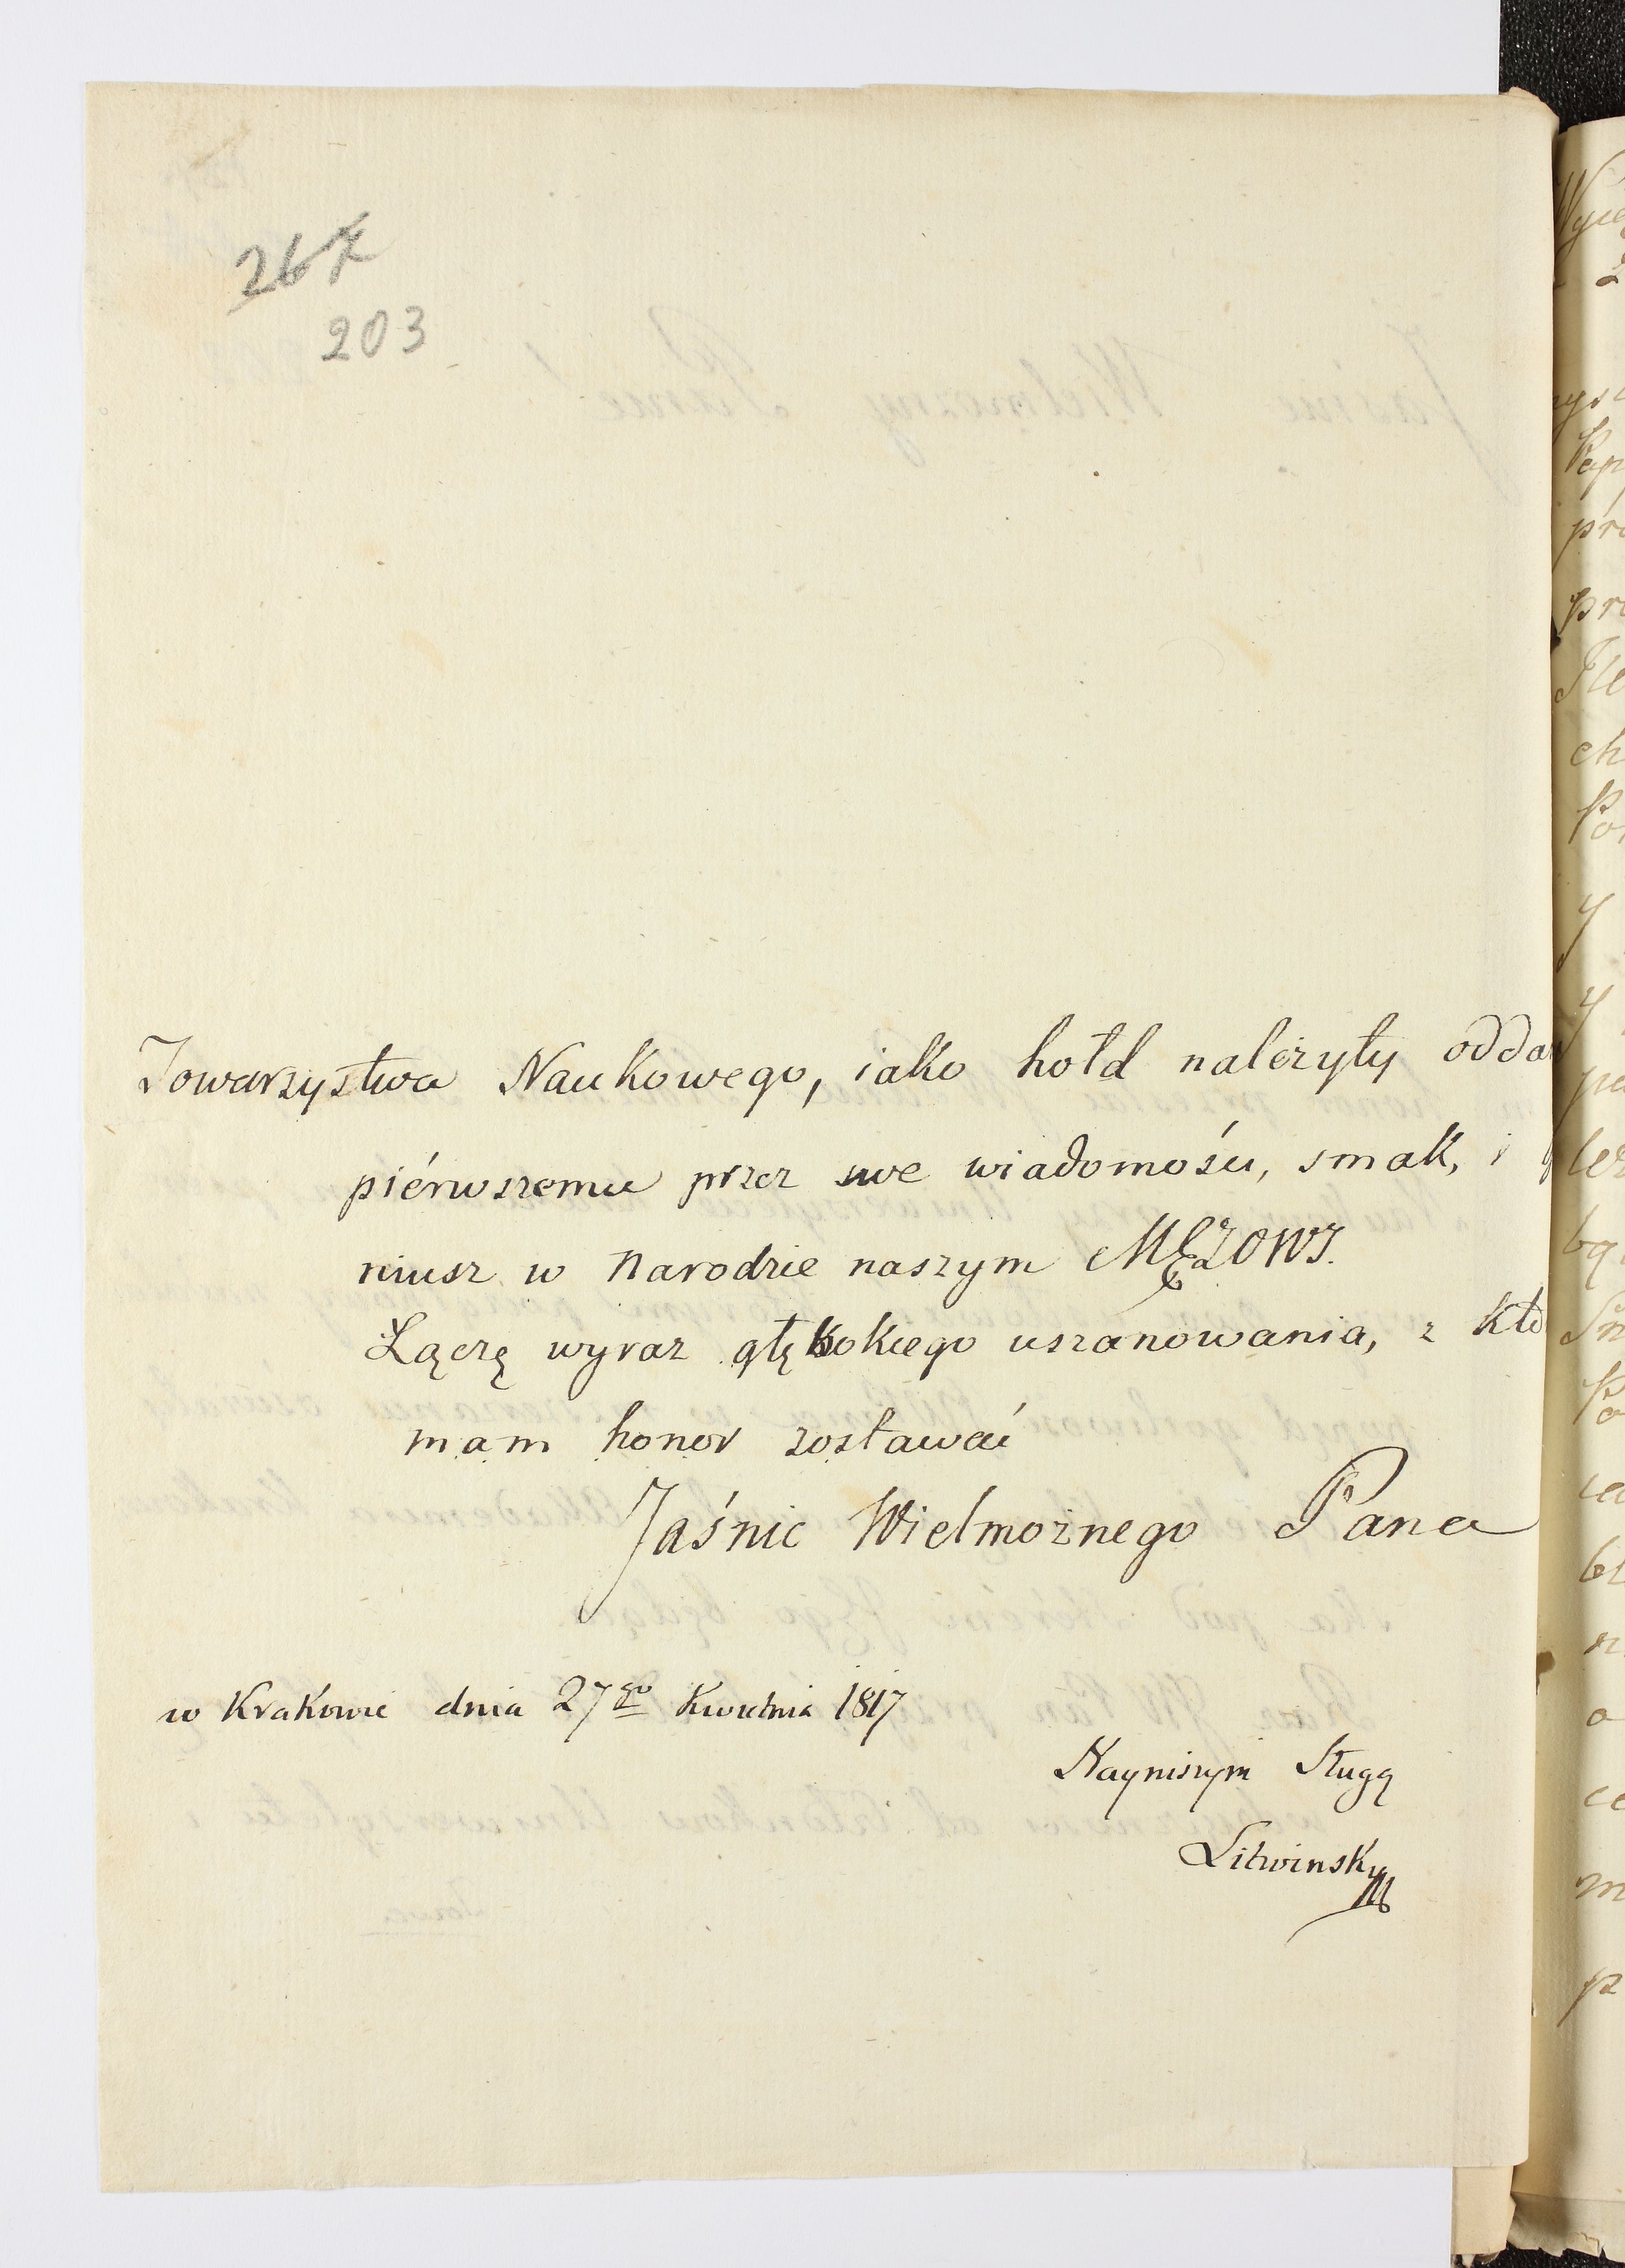 267
203
Towarzystwa Naukowego, iako hołd należyty odda
piérwszemu przez swe wiadomości, smak, i
niusz w Narodzie naszym MĘŻOWI.
Łączę wyraz głębokiego uszanowania, z któ
mam honor zostawać
Jaśnie Wielmożnego Pana
w Krakowie dnia 27go Kwietnia 1817
Nayniszym Sługą
Litwinsky